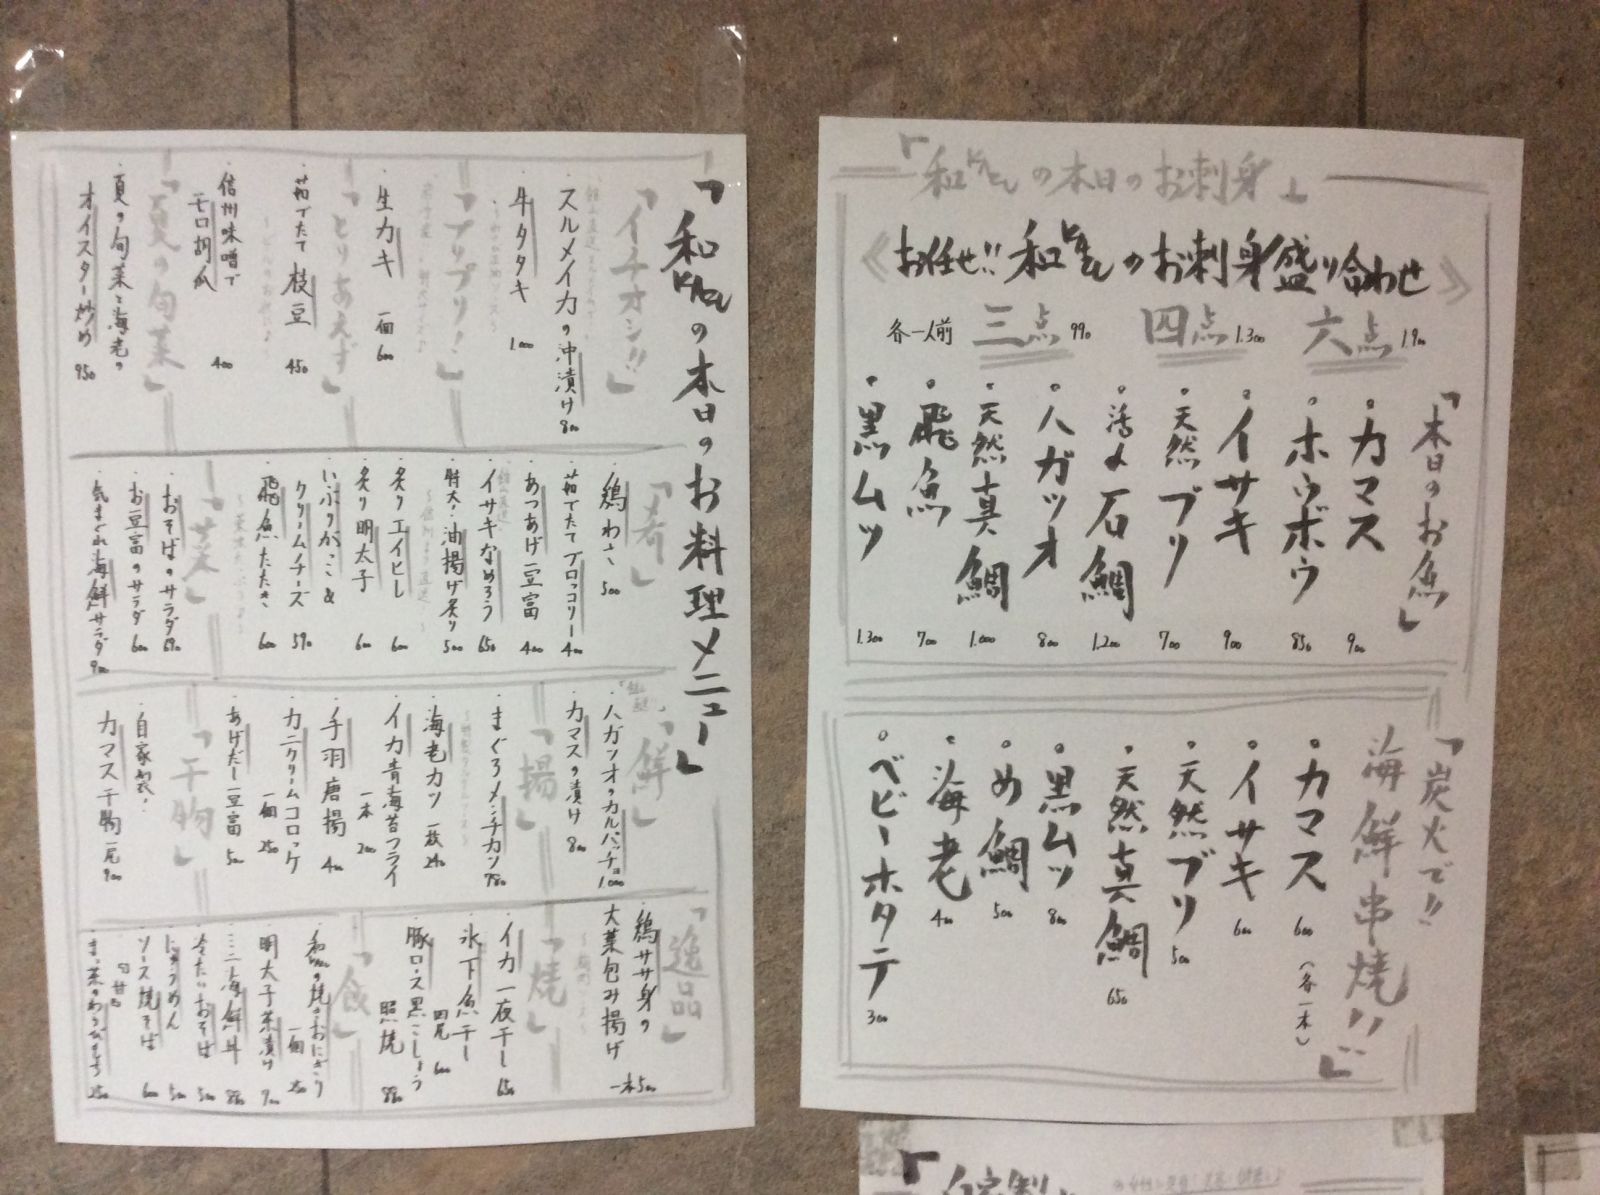 「和の本日のお料理メニュー」
「イチオシ!!」
・スルメイカの沖漬け 800
・牛タタキ 1.000
「プリプリ!」
・生カキ 一個 600
「とりあえず」
・茹でたて 枝豆 450
・信州味噌で
モロ胡瓜 400
「夏の旬菜」
・夏の旬菜と海老の
オイスター炒め 950
「肴」
・鶏わさ 500
・茹でたてブロッコリー 400
・あつあげ豆富 400
・イサキなめろう 650
・特大!油揚げ炙り 500
・炙りエイヒレ 600
・炙り明太子 600
・いぶりがっこ&
クリームチーズ 590
・飛魚たたき 600
「菜」
・おそばのサラダ 690
・お豆富のサラダ 600
・気まぐれ海鮮サラダ 900
「鮮」
・ハガツオのカルパッチョ 1.000
・カマスの漬け 800
「揚」
・まぐろメンチカツ 780
・海老カツ 一枚 240
・イカ青海苔フライ
一本 200
・手羽唐揚 400
・カニクリームコロッケ
一個 250
・あげだし豆富 500
「干物」
・自家製!
カマス干物 一尾 900
「逸品」
・鶏ササ身の
大葉包み揚げ
一本 500
「焼」
・イカ一夜干し 650
・氷下魚干し
四尾 600
・豚ロース黒こしょう
照焼 880
「食」
・和の焼きおにぎり
一個 250
・明太子茶漬け 700
・ミニ海鮮丼 880
・冷たいおそば 500
・にゅうめん 500
・ソース焼そば 600
「甘」
・まっ茶のわらびもち 250
「和の本日のお刺身」
《お任せ!! 和のお刺身盛り合わせ》
各一人前 三点 990 四点 1.300 六点 1.900
「本日のお魚」
・カマス 900
・ホウボウ 850
・イサキ 900
・天然ブリ 700
・活〆石鯛 1.200
・ハガツオ 800
・天然真鯛 1.000
・飛魚 700
・黒ムツ 1.300
「炭火で!!
海鮮串焼!!」
・カマス 600 (各一本)
・イサキ 600
・天然ブリ 500
・天然真鯛 650
・黒ムツ 800
・め鯛 500
・海老 400
・ベビーホタテ 300